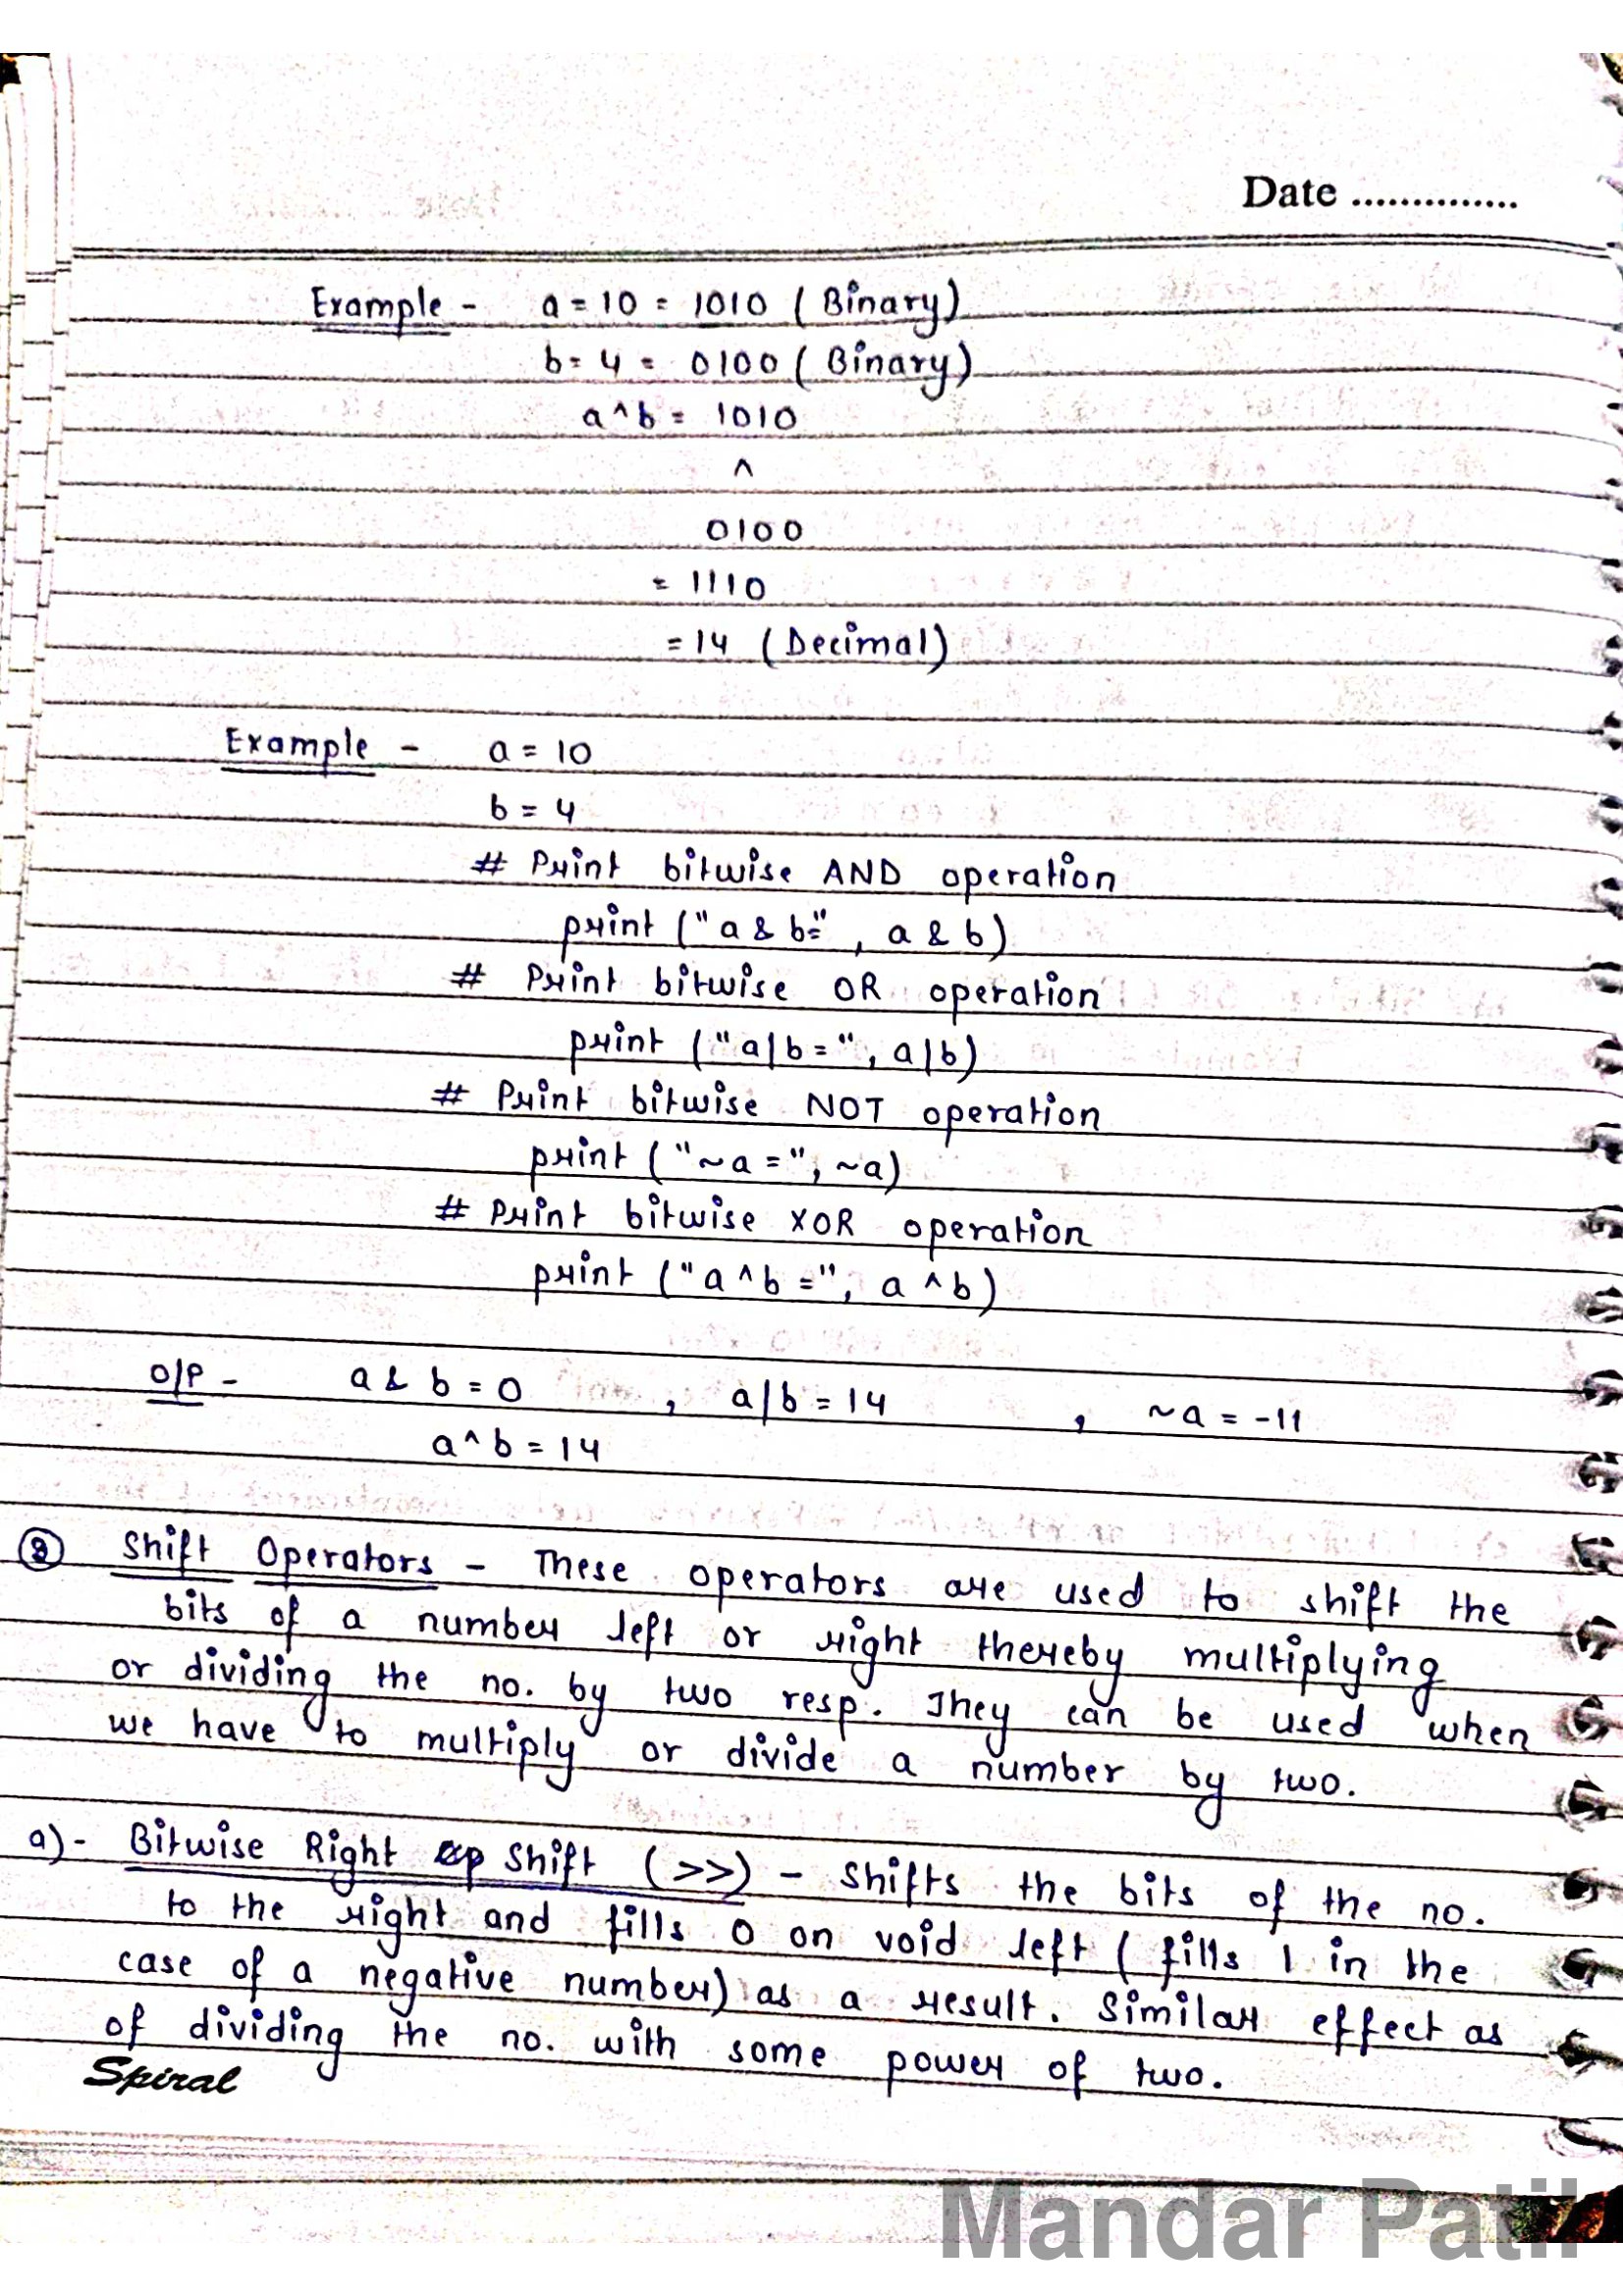 Date ..............
Example - a = 10 = 1010 ( Binary)
b = 4 = 0100 ( Binary)
a ^ b = 1010
^
0100
= 1110
= 14 (Decimal)
Example - a = 10
b = 4
# Print bitwise AND operation
print (" a & b=" , a & b)
# Print bitwise OR operation
print (" a|b = ", a|b)
# Print bitwise NOT operation
print ( "~a = ", ~a)
# Print bitwise XOR operation
print (" a ^ b = ", a ^ b)
O/P - a & b = 0 , a|b = 14 , ~a = -11
a ^ b = 14
② Shift Operators - These operators are used to shift the
bits of a number left or right thereby multiplying
or dividing the no. by two resp. They can be used when
we have to multiply or divide a number by two.
a)- Bitwise Right Shift (>>) - Shifts the bits of the no.
to the right and fills 0 on void left ( fills 1 in the
case of a negative number) as a result. Similar effect as
of dividing the no. with some power of two.
Spiral
Mandar Patil